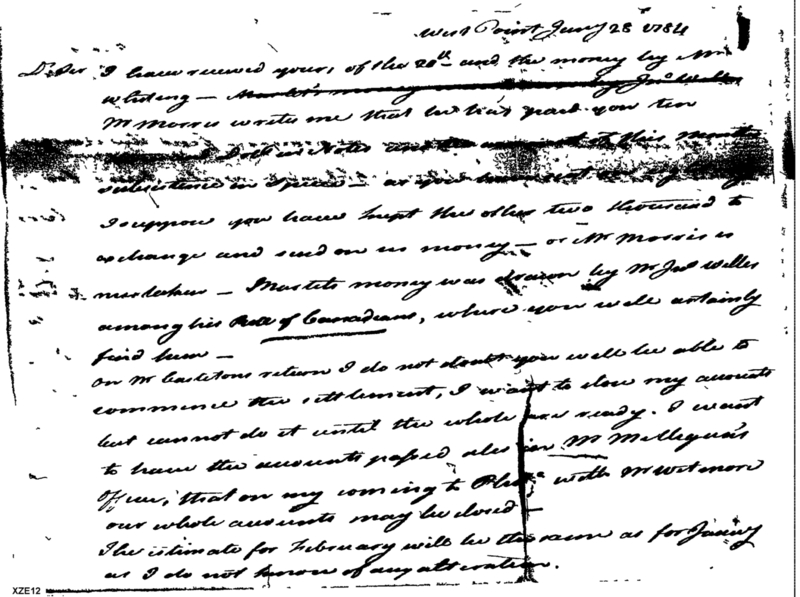 West Point Jany 28 1784
D. Sir I have received yours, of the 20th and the money by Mr
Whiting —
Mr Morris writes me that he has paid you ten
in Notes and the this Month
subsistence in Specie — as you have sent
I suppose you have kept the other two thousand to
exchange and send on in money — or Mr Morris is
mistaken — money was drawn by Mr Jno Welles
among his Rett of Canadians, where you will certainly
find him —
On Mr Carletons return I do not doubt you will be able to
commence the settlement, I want to close my accounts
but cannot do it until the whole are ready. I want
to have the accounts passed also in Mr Milligans
Office, that on my coming to Phila with Mr Wetmore
our whole accounts may be closed —
The estimate for February will be the same as for Jany
as I do not know of any alteration.
XZE12